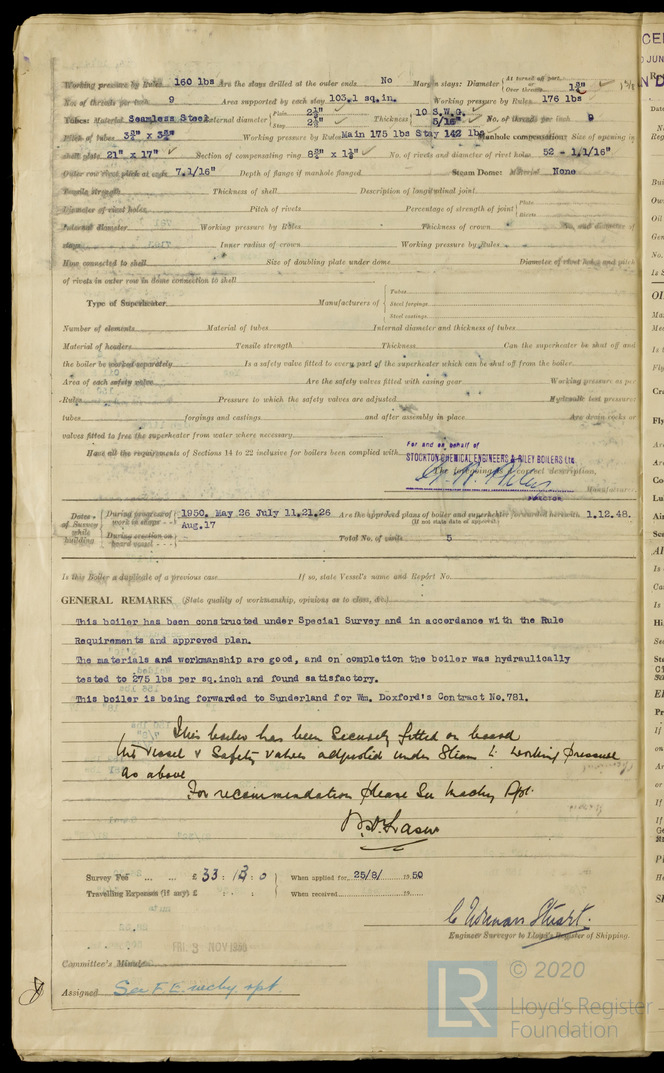 Working pressure by Rules 160 lbs Are the stays drilled at the outer ends No Margin stays: Diameter { At turned off part, or Over threads 1¾"
No. of threads per inch 9 Area supported by each stay 103.1 sq.in. Working pressure by Rules 176 lbs
Tubes: Material Seamless Steel External diameter { Plain 2½" Stay 2½" Thickness { 10 S.W.G. 5/16" No. of threads per inch 9
Pitch of tubes 3¾" x 3¾" Working pressure by Rules Main 175 lbs Stay 142 lbs Manhole compensation: Size of opening in
shell plate 21" x 17" Section of compensating ring No. of rivets and diameter of rivet holes 52 - 1.1/16"
Outer row rivet pitch at ends 7.1/16" Depth of flange if manhole flanged Steam Dome: Material None
Tensile strength Thickness of shell Description of longitudinal joint
Diameter of rivet holes Pitch of rivets Percentage of strength of joint { Plate Rivets
Internal diameter Working pressure by Rules Thickness of crown No. and diameter of
stays Inner radius of crown Working pressure by Rules
How connected to shell Size of doubling plate under dome Diameter of rivet holes and pitch
of rivets in outer row in dome connection to shell
Type of Superheater Manufacturers of { Tubes Steel forgings Steel castings
Number of elements Material of tubes Internal diameter and thickness of tubes
Material of headers Tensile strength Thickness Can the superheater be shut off and
the boiler be worked separately Is a safety valve fitted to every part of the superheater which can be shut off from the boiler
Area of each safety valve Are the safety valves fitted with easing gear Working pressure as per
Rules Pressure to which the safety valves are adjusted Hydraulic test pressure
tubes forgings and castings and after assembly in place Are drain cocks or
valves fitted to free the superheater from water where necessary
For and on behalf of
Have all the requirements of Sections 14 to 22 inclusive for boilers been complied with
STOCKTON CHEMICAL ENGINEERS & RILEY BOILERS Ltd
The foregoing is a correct description,
DIRECTOR. Manufacturer.
Dates of Survey while building { During progress of work in shops - - } 1950. May 26 July 11.21.26 Aug.17 Are the approved plans of boiler and superheater forwarded herewith 1.12.48.
(If not state date of approval)
{ During erection on board vessel - - - } Total No. of visits 5
Is this Boiler a duplicate of a previous case If so, state Vessel's name and Report No.
GENERAL REMARKS (State quality of workmanship, opinions as to class, &c.)
This boiler has been constructed under Special Survey and in accordance with the Rule
Requirements and approved plan.
The materials and workmanship are good, and on completion the boiler was hydraulically
tested to 275 lbs per sq.inch and found satisfactory.
This boiler is being forwarded to Sunderland for Wm. Doxford's Contract No.781.
This boiler has been securely fitted on board
the vessel & Safety valves adjusted under Steam to working pressure
as above
For recommendation please See Machy Rpt.
Survey Fee ... ... £ 33 : 12 : 0 When applied for, 25/8/ 19 50
Travelling Expenses (if any) £ : : When received 19
C Norman Stuart.
Engineer Surveyor to Lloyd's Register of Shipping.
FRI 3 NOV 1950
Committee's Minute
Assigned See F.E. machy rpt.
LR © 2020
Lloyd's Register
Foundation